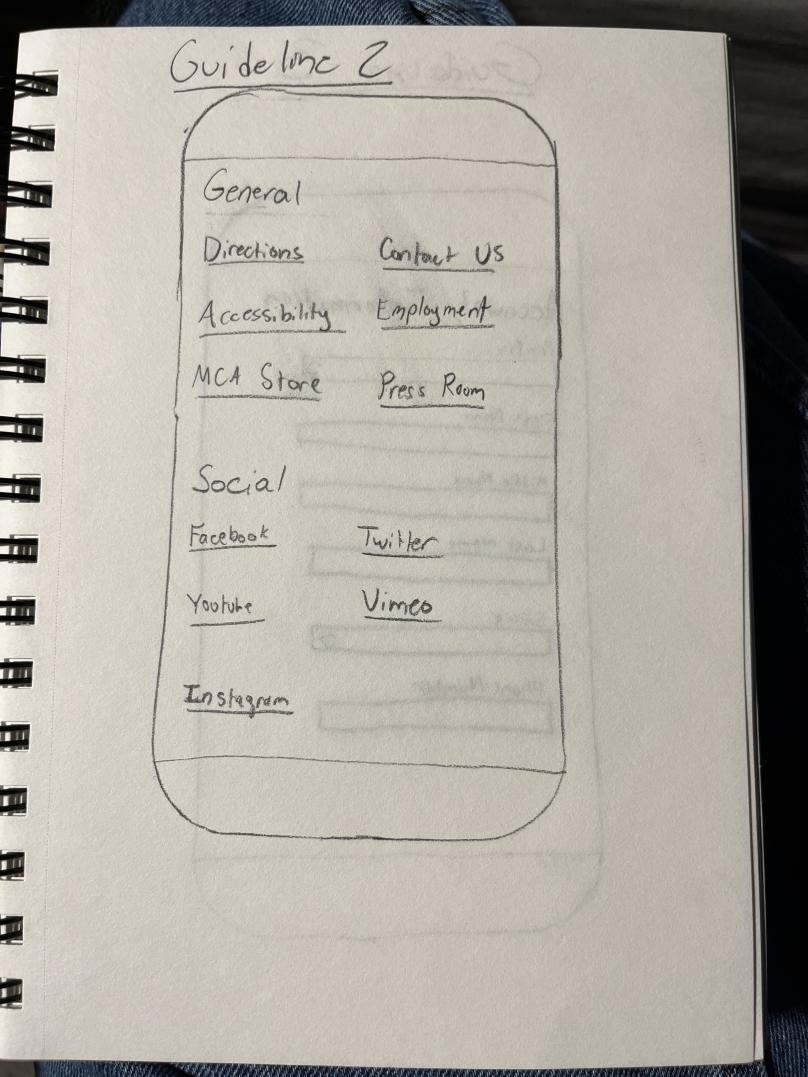 Guideline 2
General
Directions Contact Us
Accessibility Employment
MCA Store Press Room
Social
Facebook Twitter
Youtube Vimeo
Instagram